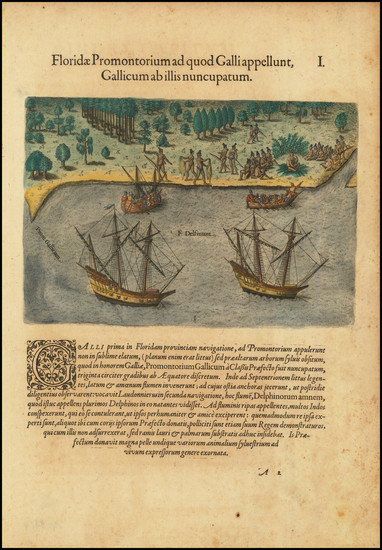 Floridæ Promontorium ad quod Galli appellunt, I.
Gallicum ab illis nuncupatum.
F. Delfinum
1
GALLI prima in Floridam provinciam navigatione, ad Promontorium appulerunt
non in sublime elatum, (planum enim erat littus) sed præaltarum arborum sylvis obsitum,
quod in honorem Galliæ, Promontorium Gallicum à Classis Præfecto fuit nuncupatum,
triginta circiter gradibus ab Æquatore discretum. Inde ad Septentrionem littus legen-
tes, latum & amœnum flumen invenerunt, ad cujus ostia anchoras jecerunt, ut postridie
diligentius observarent: vocavit Laudonnierus in secunda navigatione, hoc flumē, Delphinorum amnem,
quòd istuc appellens plurimos Delphinos in eo natantes vidisset. Ad fluminis ripas appellentes, multos Indos
conspexerunt, qui eò se contulerant, ut ipsos perhumaniter & amicè exciperent: quemadmodum re ipsa ex-
perti sunt, aliquot ibi cum corijs ipsorum Præfecto donatis, polliciti sunt etiam suum Regem demonstraturos,
qui cum illis non adsurrexerat, sed ramis lauri & palmarum substratis adhuc insidebat. Is Præ-
fectum donavit magna pelle undique variorum animalium sylvestrium ad
vivum expressorum genere exornata.
A 2